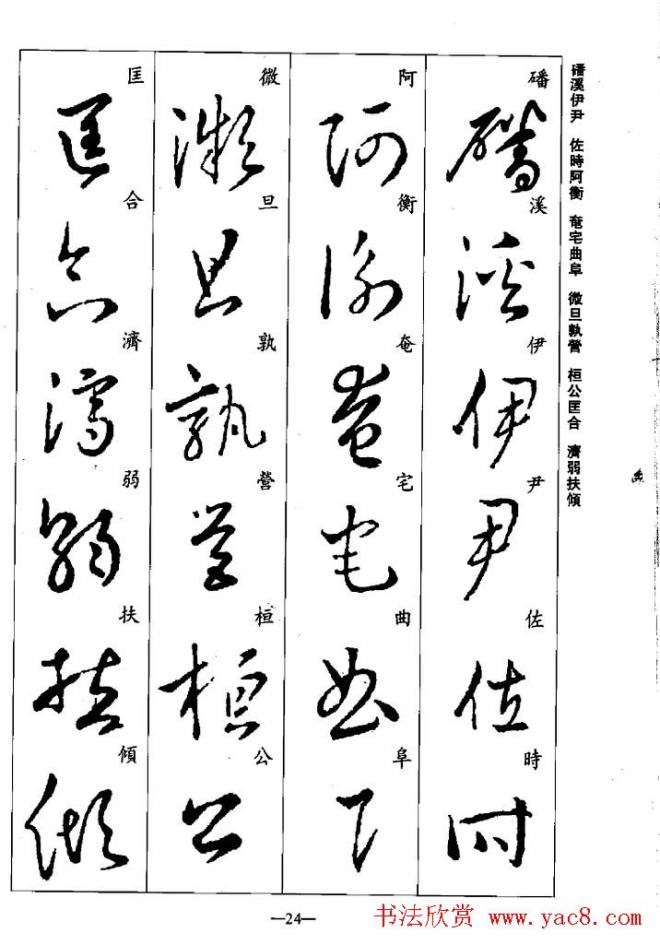 磻溪伊尹　佐時阿衡　奄宅曲阜　微旦孰營　桓公匡合　濟弱扶傾
磻溪伊尹佐時
阿衡奄宅曲阜
微旦孰營桓公
匡合濟弱扶傾
—24—
书法欣赏 www.yac8.com